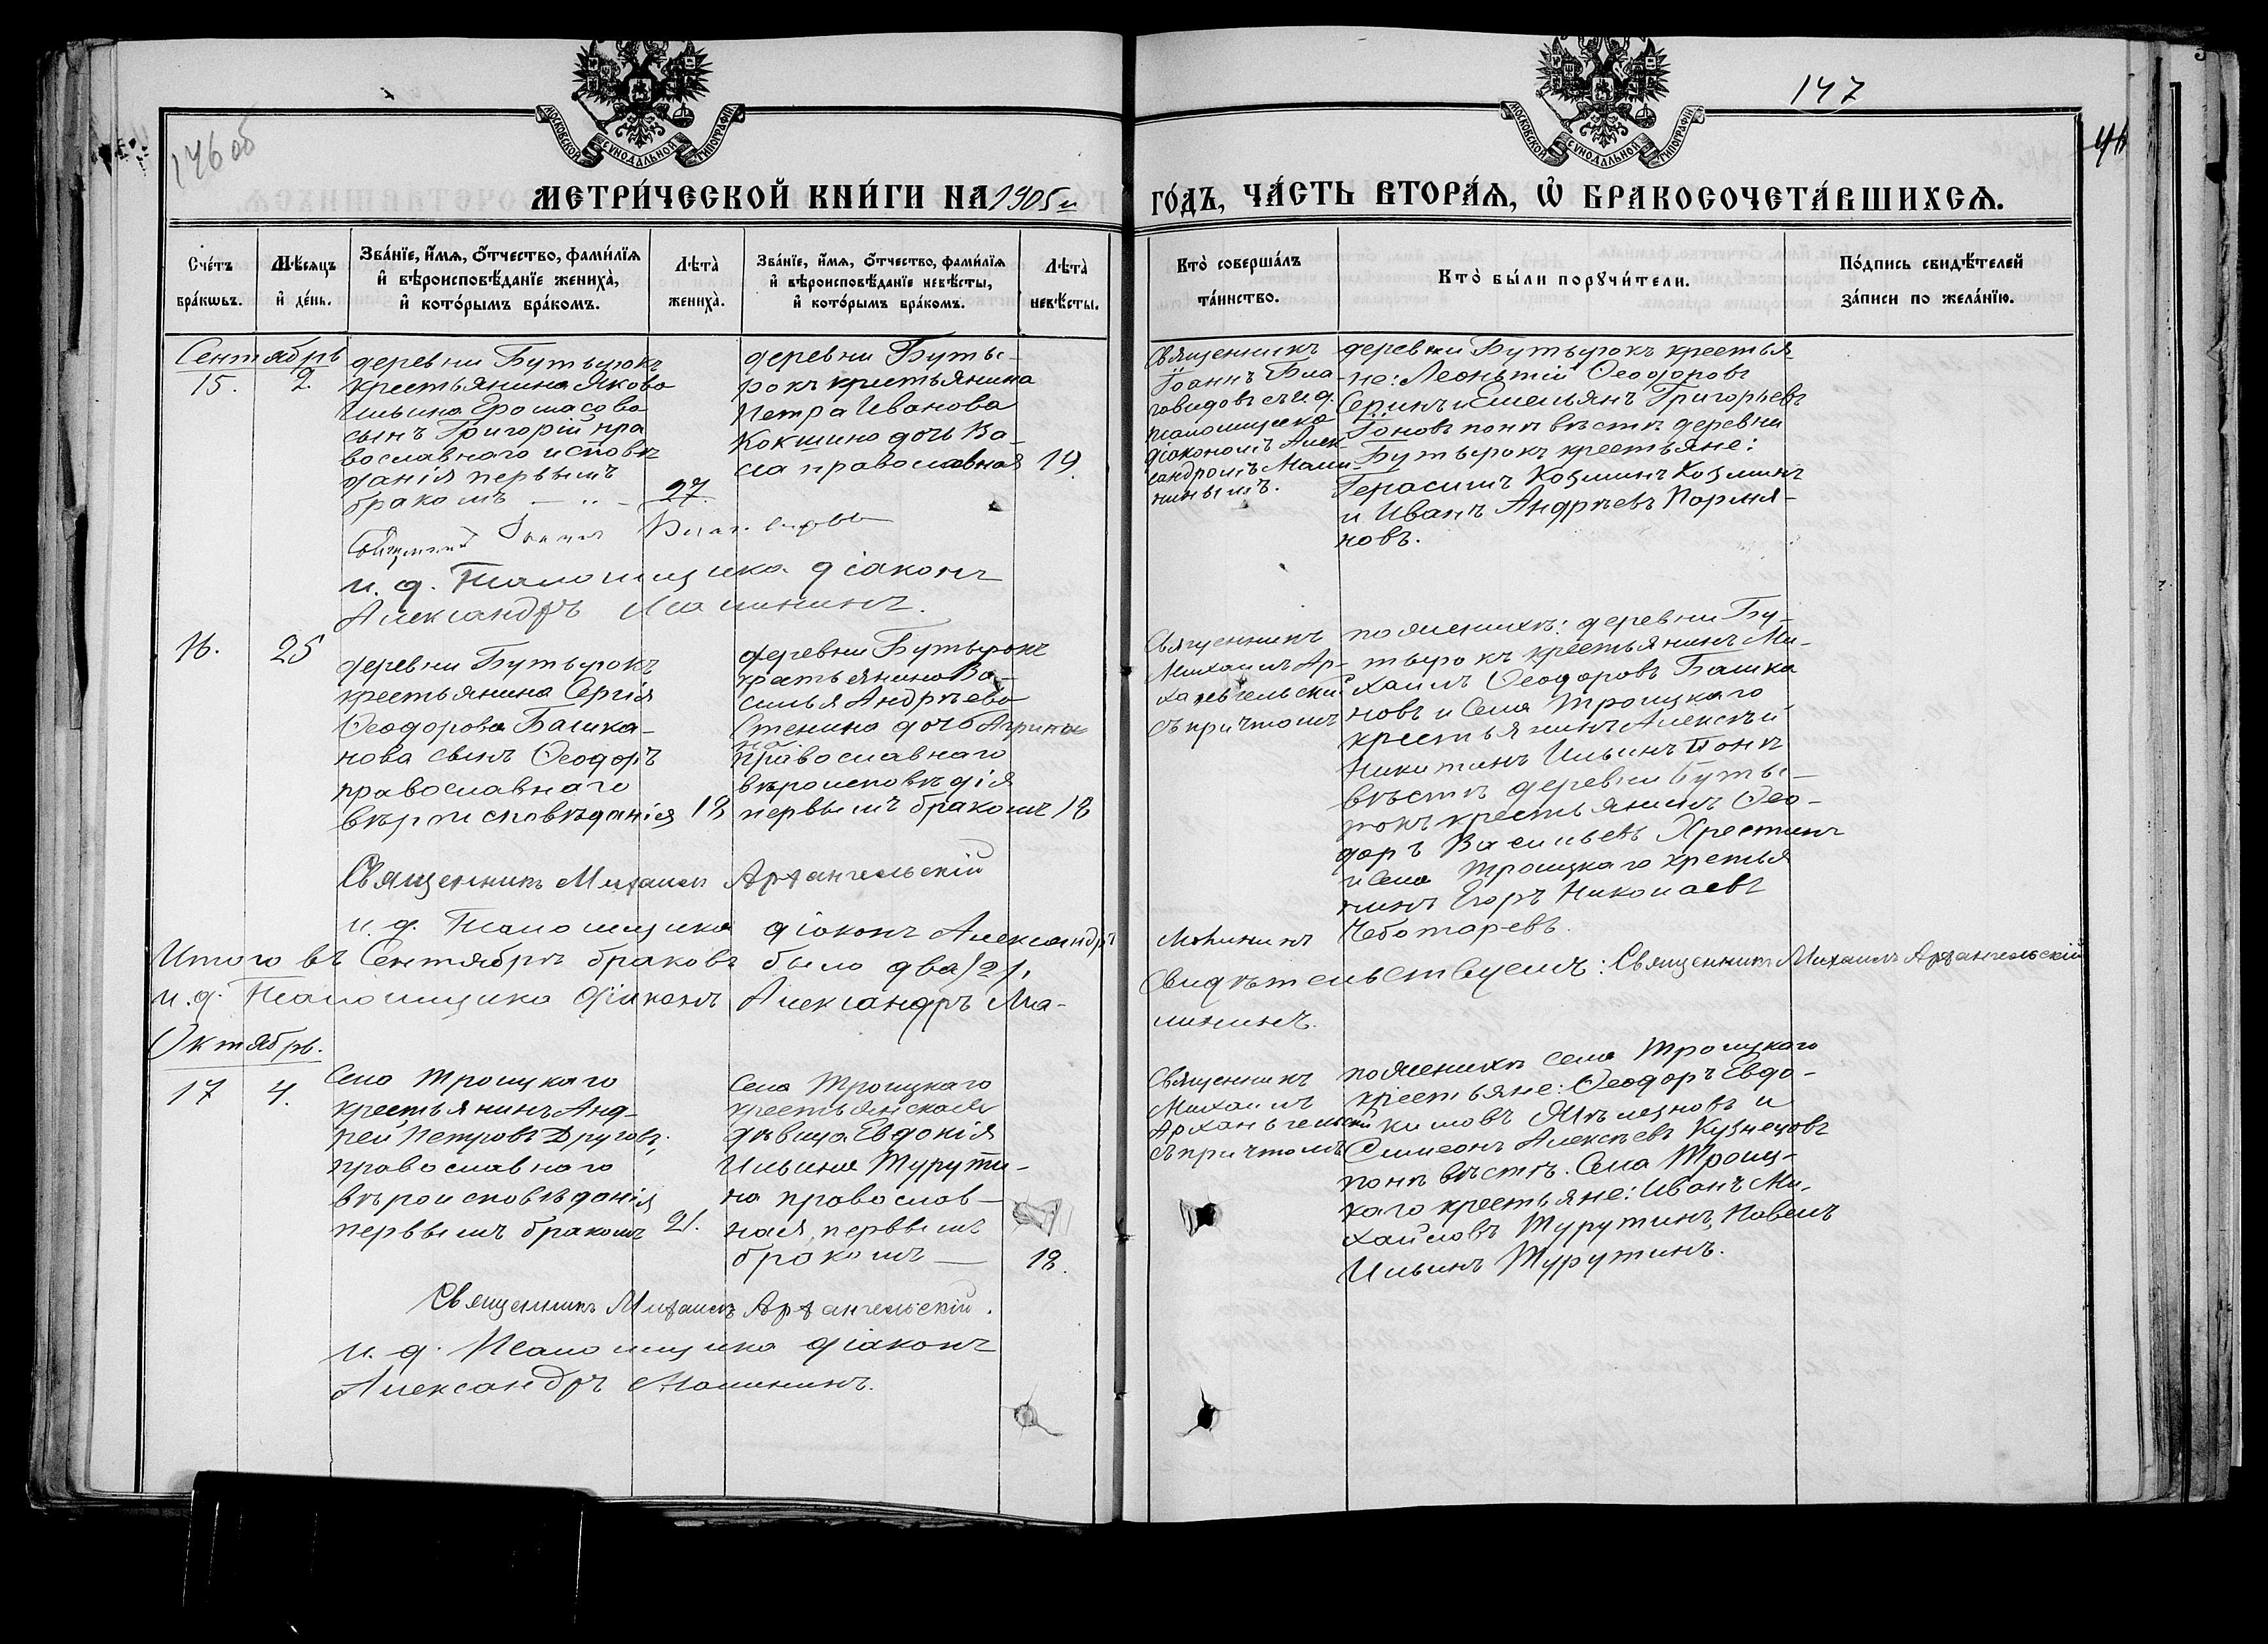 146 об
147
МОСКОВСКОЙ СѴНОДАЛЬНОЙ ТИПОГРАФІИ
МОСКОВСКОЙ СѴНОДАЛЬНОЙ ТИПОГРАФІИ
МЕТРИ́ЧЕСКОЙ КНИ́ГИ НА 1905 й
ГО́ДЪ, ЧА́СТЬ ВТОРА́Ѧ, Ѽ БРАКОСОЧЕТА́ВШИХСѦ.
Сче́тъ
бра́кѡвъ.
Мѣ́сяцъ
и҆ де́нь.
Зва́нїе, и҆́мѧ, ѻ҆́тчество, фами́лїѧ
и҆ вѣроисповѣ́данїе жениха̀,
и҆ кото́рымъ бра́комъ.
Лѣта̀
жениха̀.
Зва́нїе, и҆́мѧ, ѻ҆́тчество, фами́лїѧ
и҆ вѣроисповѣ́данїе невѣ́сты,
и҆ кото́рымъ бра́комъ.
Лѣта̀
невѣ́сты.
Кто̀ соверша́лъ
та́инство.
Кто̀ бы́ли порꙋчи́тели.
По́дпись свидѣ́телей
за́писи по жела́нїю.
Сентябрь
15.
2.
деревни Бутырокъ
крестьянина Якова
Ильина Еромасова
сынъ Григорій пра
вославнаго исповѣ
данія первымъ
бракомъ
27.
деревни Буты-
рокъ крестьянина
Петра Иванова
Кокшина дочь Ва-
са православная
19.
Священникъ
Іоаннъ Бла-
говидовъ съ и.д.
псаломщика
діакономъ Алек-
сандромъ Мали-
нинымъ.
деревни Бутырокъ крестья-
не: Леонтій Ѳеодоровъ
Серинъ и Емельянъ Григорьевъ
Іоновъ понѣвѣстѣ деревни
Бутырокъ крестьяне:
Герасимъ Козминъ Козминъ
и Иванъ Андреевъ Порми-
новъ.
Священникъ Іоаннъ Благовидовъ
и. д. Псаломщика діаконъ
Александръ Малининъ.
16.
25
деревни Бутырокъ
крестьянина Сергія
Ѳеодорова Башка-
нова сынъ Ѳеодоръ
православнаго
вѣроисповѣданія
18
деревни Бутырокъ
кратьянина Ва-
силья Андреева
Стенина дочь Агрипи
на
православнаго
вѣроисповѣдія
первымъ бракомъ
18
Священникъ
Михаилъ Ар-
хангельскій
съ причтомъ
поженихѣ: деревни Бу-
тырокъ крестьянинъ Ми-
хаилъ Ѳеодоровъ Башка
новъ и села Троицкаго
крестьянинъ Алексѣй
Никитинъ Ильинъ понѣ
вѣстѣ деревни Буты-
рокъ крестьянинъ Ѳео-
доръ Васильевъ Хрестинъ
и села Троицкаго крестья
нинъ Егоръ Николаевъ
Чеботаревъ.
Священникъ Михаилъ Архангельскій
и. д. Псаломщика діаконъ Александръ
Малининъ
Итого въ Сентябрѣ браковъ было два /2/.
Свидѣтельствуемъ: Священникъ Михаилъ Архангельскій
и. д. Псаломщика діаконъ Александръ Ма-
лининъ.
Октябрь.
17
4.
Села Троицкаго
крестьянинъ Анд-
рей Петровъ Друговъ,
православнаго
вѣроисповѣданія
первымъ бракомъ
21.
Села Троицкаго
крестьянская
дѣвица Евдокія
Ильина Турути-
на православ-
ная, первымъ
бракомъ —
18.
Священникъ
Михаилъ
Архангельскій
съ причтомъ
поженихѣ села Троицкаго
крестьяне: Ѳеодоръ Евдо-
кимовъ и
Симеонъ Алексѣевъ Кузнецовъ
понѣвѣстѣ. Села Троиц-
каго крестьяне: Иванъ Ми-
хайловъ Турутинъ, Павелъ
Ильинъ Турутинъ.
Священникъ Михаилъ Архангельскій.
и. д. Псаломщика діаконъ
Александръ Малининъ.